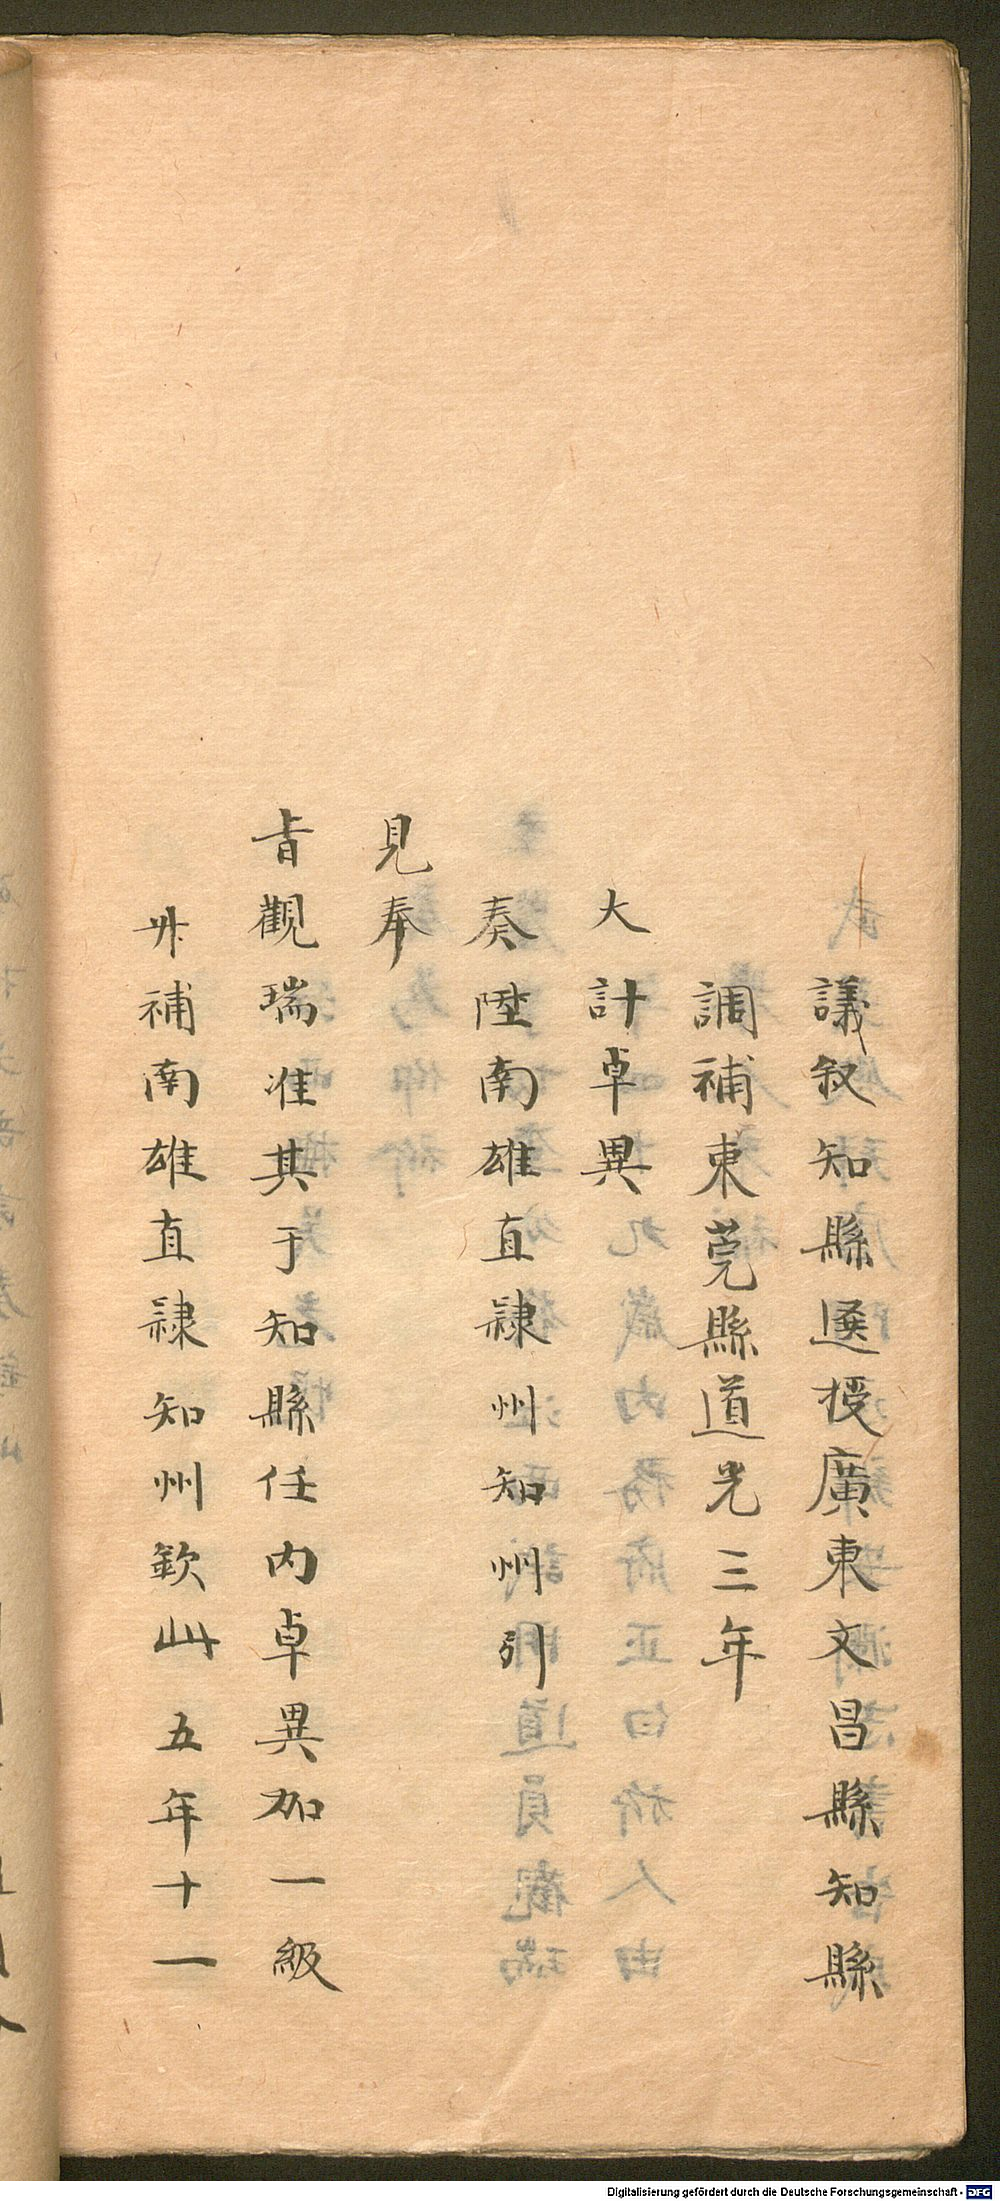 議叙知縣選授廣東文昌縣知縣
調補東莞縣道光三年
大計卓異
奏陞南雄直隸州知州引
見奉
旨觀瑞准其于知縣任內卓異加一級
補南雄直隸知州欽此五年十一
Digitalisierung gefördert durch die Deutsche Forschungsgemeinschaft - DFG